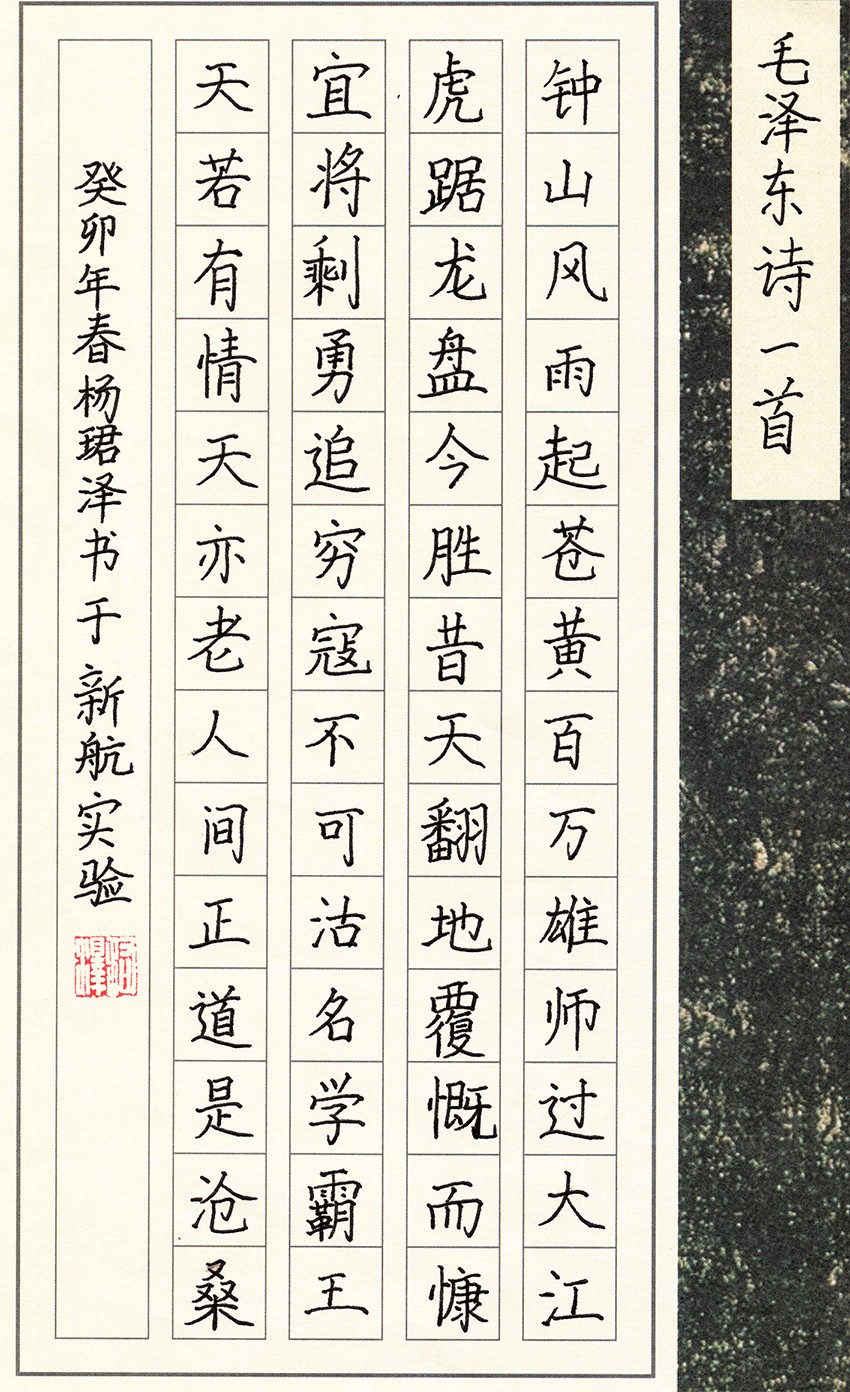 毛泽东诗一首
钟山风雨起苍黄百万雄师过大江
虎踞龙盘今胜昔天翻地覆慨而慷
宜将剩勇追穷寇不可沽名学霸王
天若有情天亦老人间正道是沧桑
癸卯年春杨珺泽书于新航实验